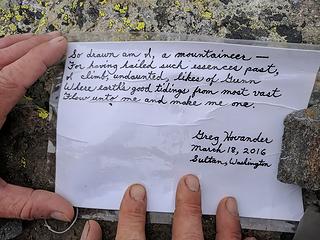 So drawn am I, a mountaineer —
For having hailed such essences past,
I climb, undaunted, likes of Gunn
Where earth's good tidings from most vast
Flow unto me and make me one.
Greg Hovander
March 18, 2016
Sultan, Washington